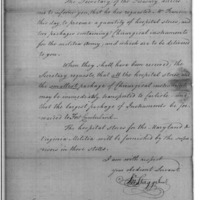 The Secretary of the Treasury
to inform you, that he has requested Mr Francis
this day to procure a quantity of hospital stores, and
two packages containing Chirurgical instruments
for the militia Army, and which are to be delivered
to you.
When they shall have been received, the
Secretary requests that all the hospital stores and
the smallest package of Chirurgical instruments
may be immediately transported to Carlisle, and
that the largest package of Instruments be for-
warded to Fort Cumberland.
The hospital stores for the Maryland &
Virginia Militia will be furnished by the super-
visors in those states.
I am with respect
your Obedient Servant